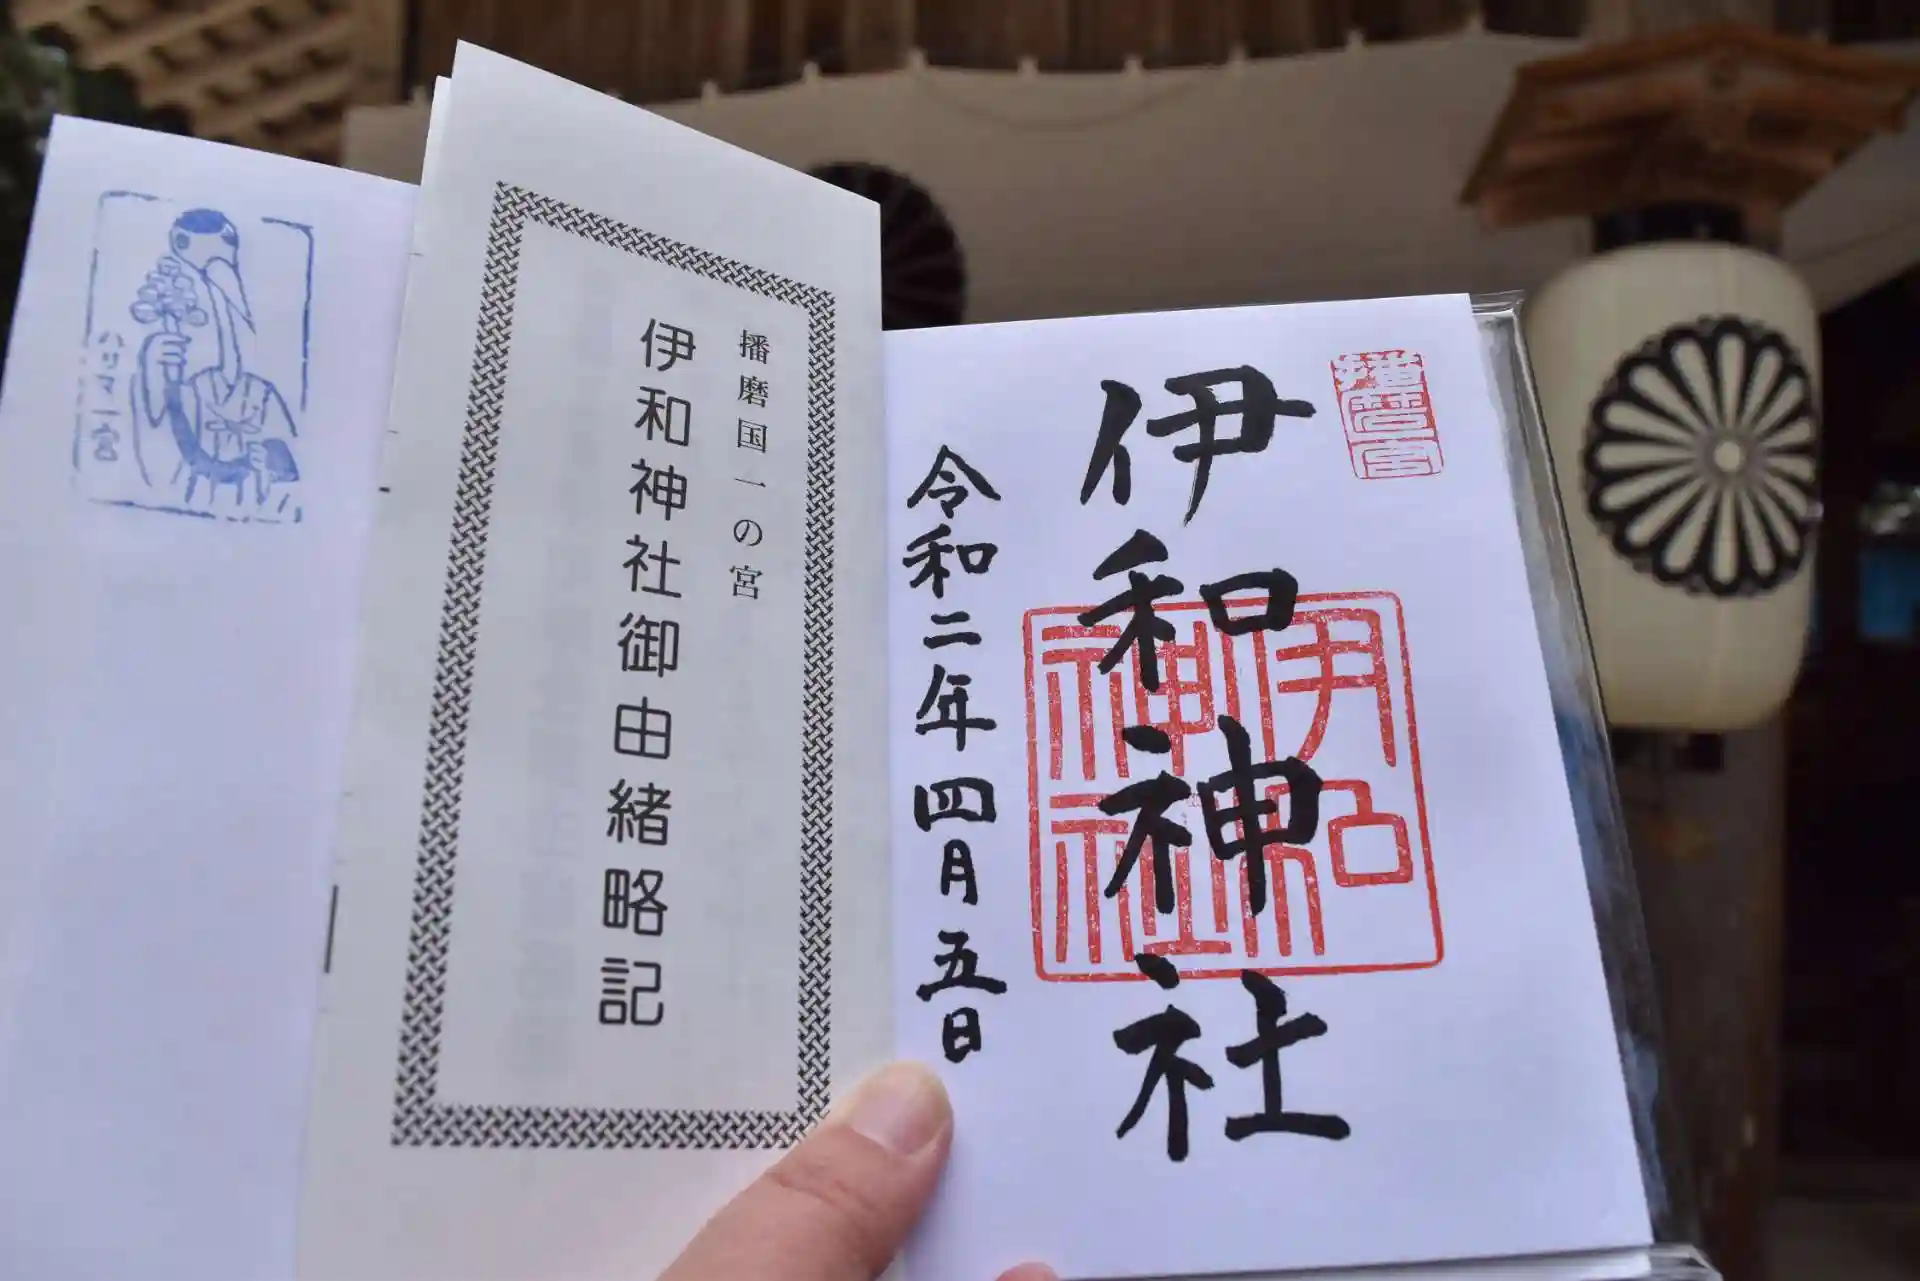 播磨一宮
伊和神社
伊和神社
令和二年四月五日
播磨国一の宮
伊和神社御由緒略記
ハリマ一宮